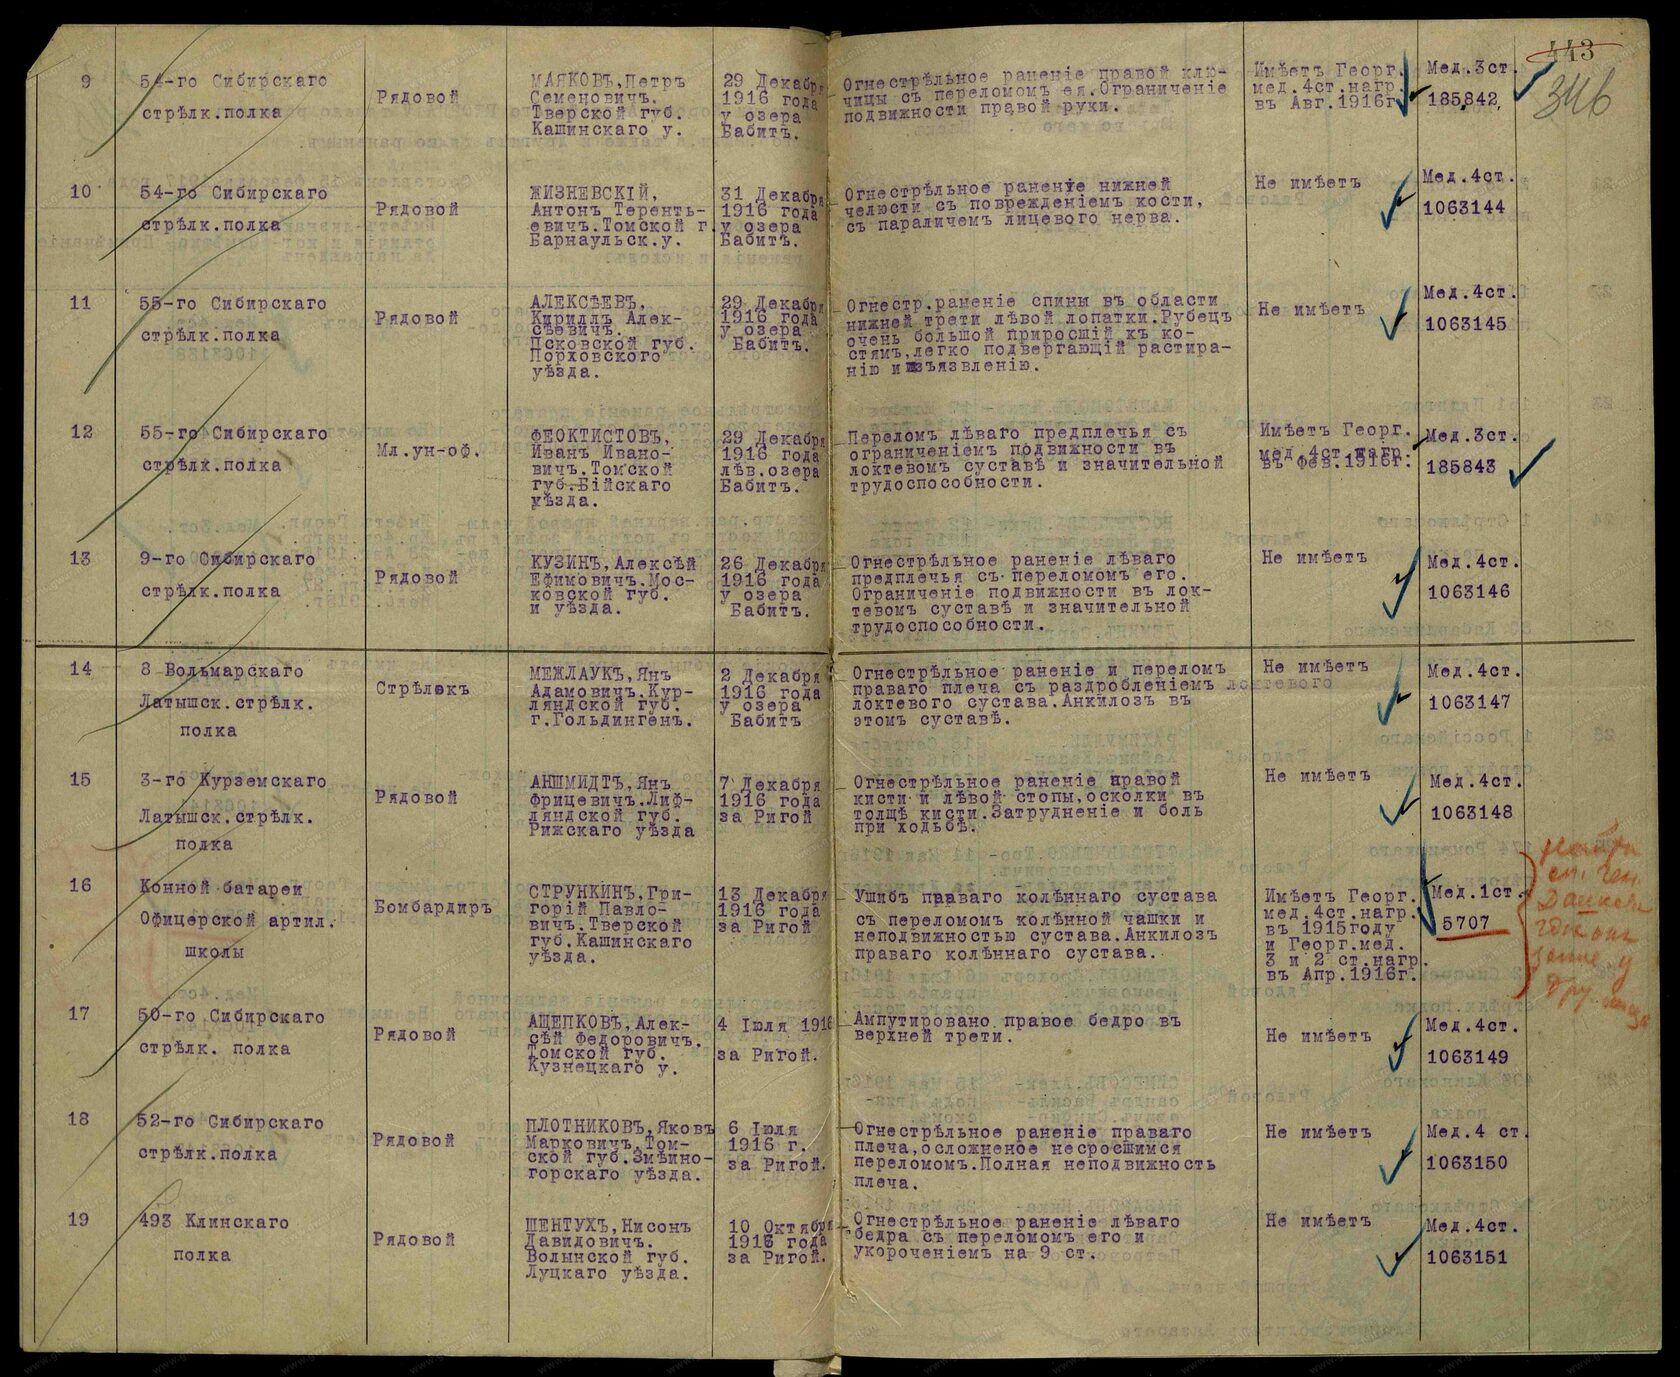 443
346
9
54-го Сибирскаго
стрѣлк.полка
Рядовой
МАЯКОВЪ,Петръ
Семеновичъ.
Тверской губ.
Кашинскаго у.
29 Декабря
1916 года
у озера
Бабитъ.
Огнестрѣльное раненіе правой клю-
чицы съ переломомъ ея.Ограниченіе
подвижности правой руки.
Имѣетъ Георг.
мед.4ст.нагр.
въ Авг.1916г
Мед.3ст.
185842,
10
54-го Сибирскаго
стрѣлк.полка
Рядовой
ЖИЗНЕВСКІЙ,
Антонъ Теренть-
евичъ.Томской г.
Барнаульск.у.
31 Декабря
1916 года
у озера
Бабитъ.
Огнестрѣльное раненіе нижней
челюсти съ поврежденіемъ кости,
съ параличемъ лицевого нерва.
Не имѣетъ
Мед.4ст.
1063144
11
55-го Сибирскаго
стрѣлк.полка
Рядовой
АЛЕКСѢЕВЪ,
Кириллъ Алек-
сѣевичъ.
Псковской губ.
Порховского
уѣзда.
29 Декабря
1916 года
у озера
Бабитъ.
Огнестр.раненіе спины въ области
нижней трети лѣвой лопатки.Рубецъ
очень большой приросшій къ ко-
стямъ,легко подвергающій растира-
нію и изъязвленію.
Не имѣетъ
Мед.4ст.
1063145
12
55-го Сибирскаго
стрѣлк.полка
Мл.ун-оф.
ФЕОКТИСТОВЪ,
Иванъ Ивано-
вичъ.Томской
губ.Бійскаго
уѣзда.
29 Декабря
1916 года
лѣв.озера
Бабитъ.
Переломъ лѣваго предплечья съ
ограниченіемъ подвижности въ
локтевомъ суставѣ и значительной
трудоспособности.
Имѣетъ Георг.
мед.4ст.нагр.
въ Фев.1916г.
Мед.3ст.
185843
13
9-го Сибирскаго
стрѣлк.полка
Рядовой
КУЗИНЪ,Алексѣй
Ефимовичъ.Мос-
ковской губ.
и уѣзда.
26 Декабря
1916 года
у озера
Бабитъ.
Огнестрѣльное раненіе лѣваго
предплечья съ переломомъ его.
Ограниченіе подвижности въ лок-
тевомъ суставѣ и значительной
трудоспособности.
Не имѣетъ
Мед.4ст.
1063146
14
3 Вольмарскаго
Латышск.стрѣлк.
полка
Стрѣлокъ
МЕЖЛАУКЪ,Янъ
Адамовичъ.Кур-
ляндской губ.
г.Гольдингенъ.
2 Декабря
1916 года
у озера
Бабитъ
Огнестрѣльное раненіе и переломъ
праваго плеча съ раздробленіемъ локтевого
локтевого сустава.Анкилозъ въ
этомъ суставѣ.
Не имѣетъ
Мед.4ст.
1063147
15
3-го Курземскаго
Латышск.стрѣлк.
полка
Рядовой
АНШМИДТЪ,Янъ
Фрицевичъ.Лиф-
ляндской губ.
Рижскаго уѣзда
7 Декабря
1916 года
за Ригой
Огнестрѣльное раненіе правой
кисти и лѣвой стопы,осколки въ
толщѣ кисти.Затрудненіе и боль
при ходьбѣ.
Не имѣетъ
Мед.4ст.
1063148
16
Конной батареи
Офицерской артил.
школы
Бомбардиръ
СТРУНКИНЪ,Гри-
горій Павло-
вичъ.Тверской
губ.Кашинскаго
уѣзда.
13 Декабря
1916 года
за Ригой
Ушибъ праваго колѣннаго сустава
съ переломомъ колѣнной чашки и
неподвижностью сустава.Анкилозъ
праваго колѣннаго сустава.
Имѣетъ Георг.
мед.4ст.нагр.
въ 1915году
и Георг.мед.
3 и 2 ст.нагр.
въ Апр.1916г.
Мед.1ст.
5707
17
50-го Сибирскаго
стрѣлк. полка
Рядовой
АЩЕПКОВЪ,Алек-
сѣй Федоровичъ.
Томской губ.
Кузнецкаго у.
4 Іюля 1916
за Ригой.
Ампутировано правое бедро въ
верхней трети.
Не имѣетъ
Мед.4ст.
1063149
18
52-го Сибирскаго
стрѣлк.полка
Рядовой
ПЛОТНИКОВЪ,Яковъ
Марковичъ.Том-
ской губ.Змѣино-
горскаго уѣзда.
6 Іюля
1916 г.
за Ригой.
Огнестрѣльное раненіе праваго
плеча,осложненое несросшимся
переломомъ.Полная неподвижность
плеча.
Не имѣетъ
Мед.4 ст.
1063150
19
493 Клинскаго
полка
Рядовой
ШЕНТУХЪ,Нисонъ
Давидовичъ.
Волынской губ.
Луцкаго уѣзда.
10 Октября
1916 года
за Ригой.
Огнестрѣльное раненіе лѣваго
бедра съ переломомъ его и
укороченіемъ на 9 ст.
Не имѣетъ
Мед.4ст.
1063151